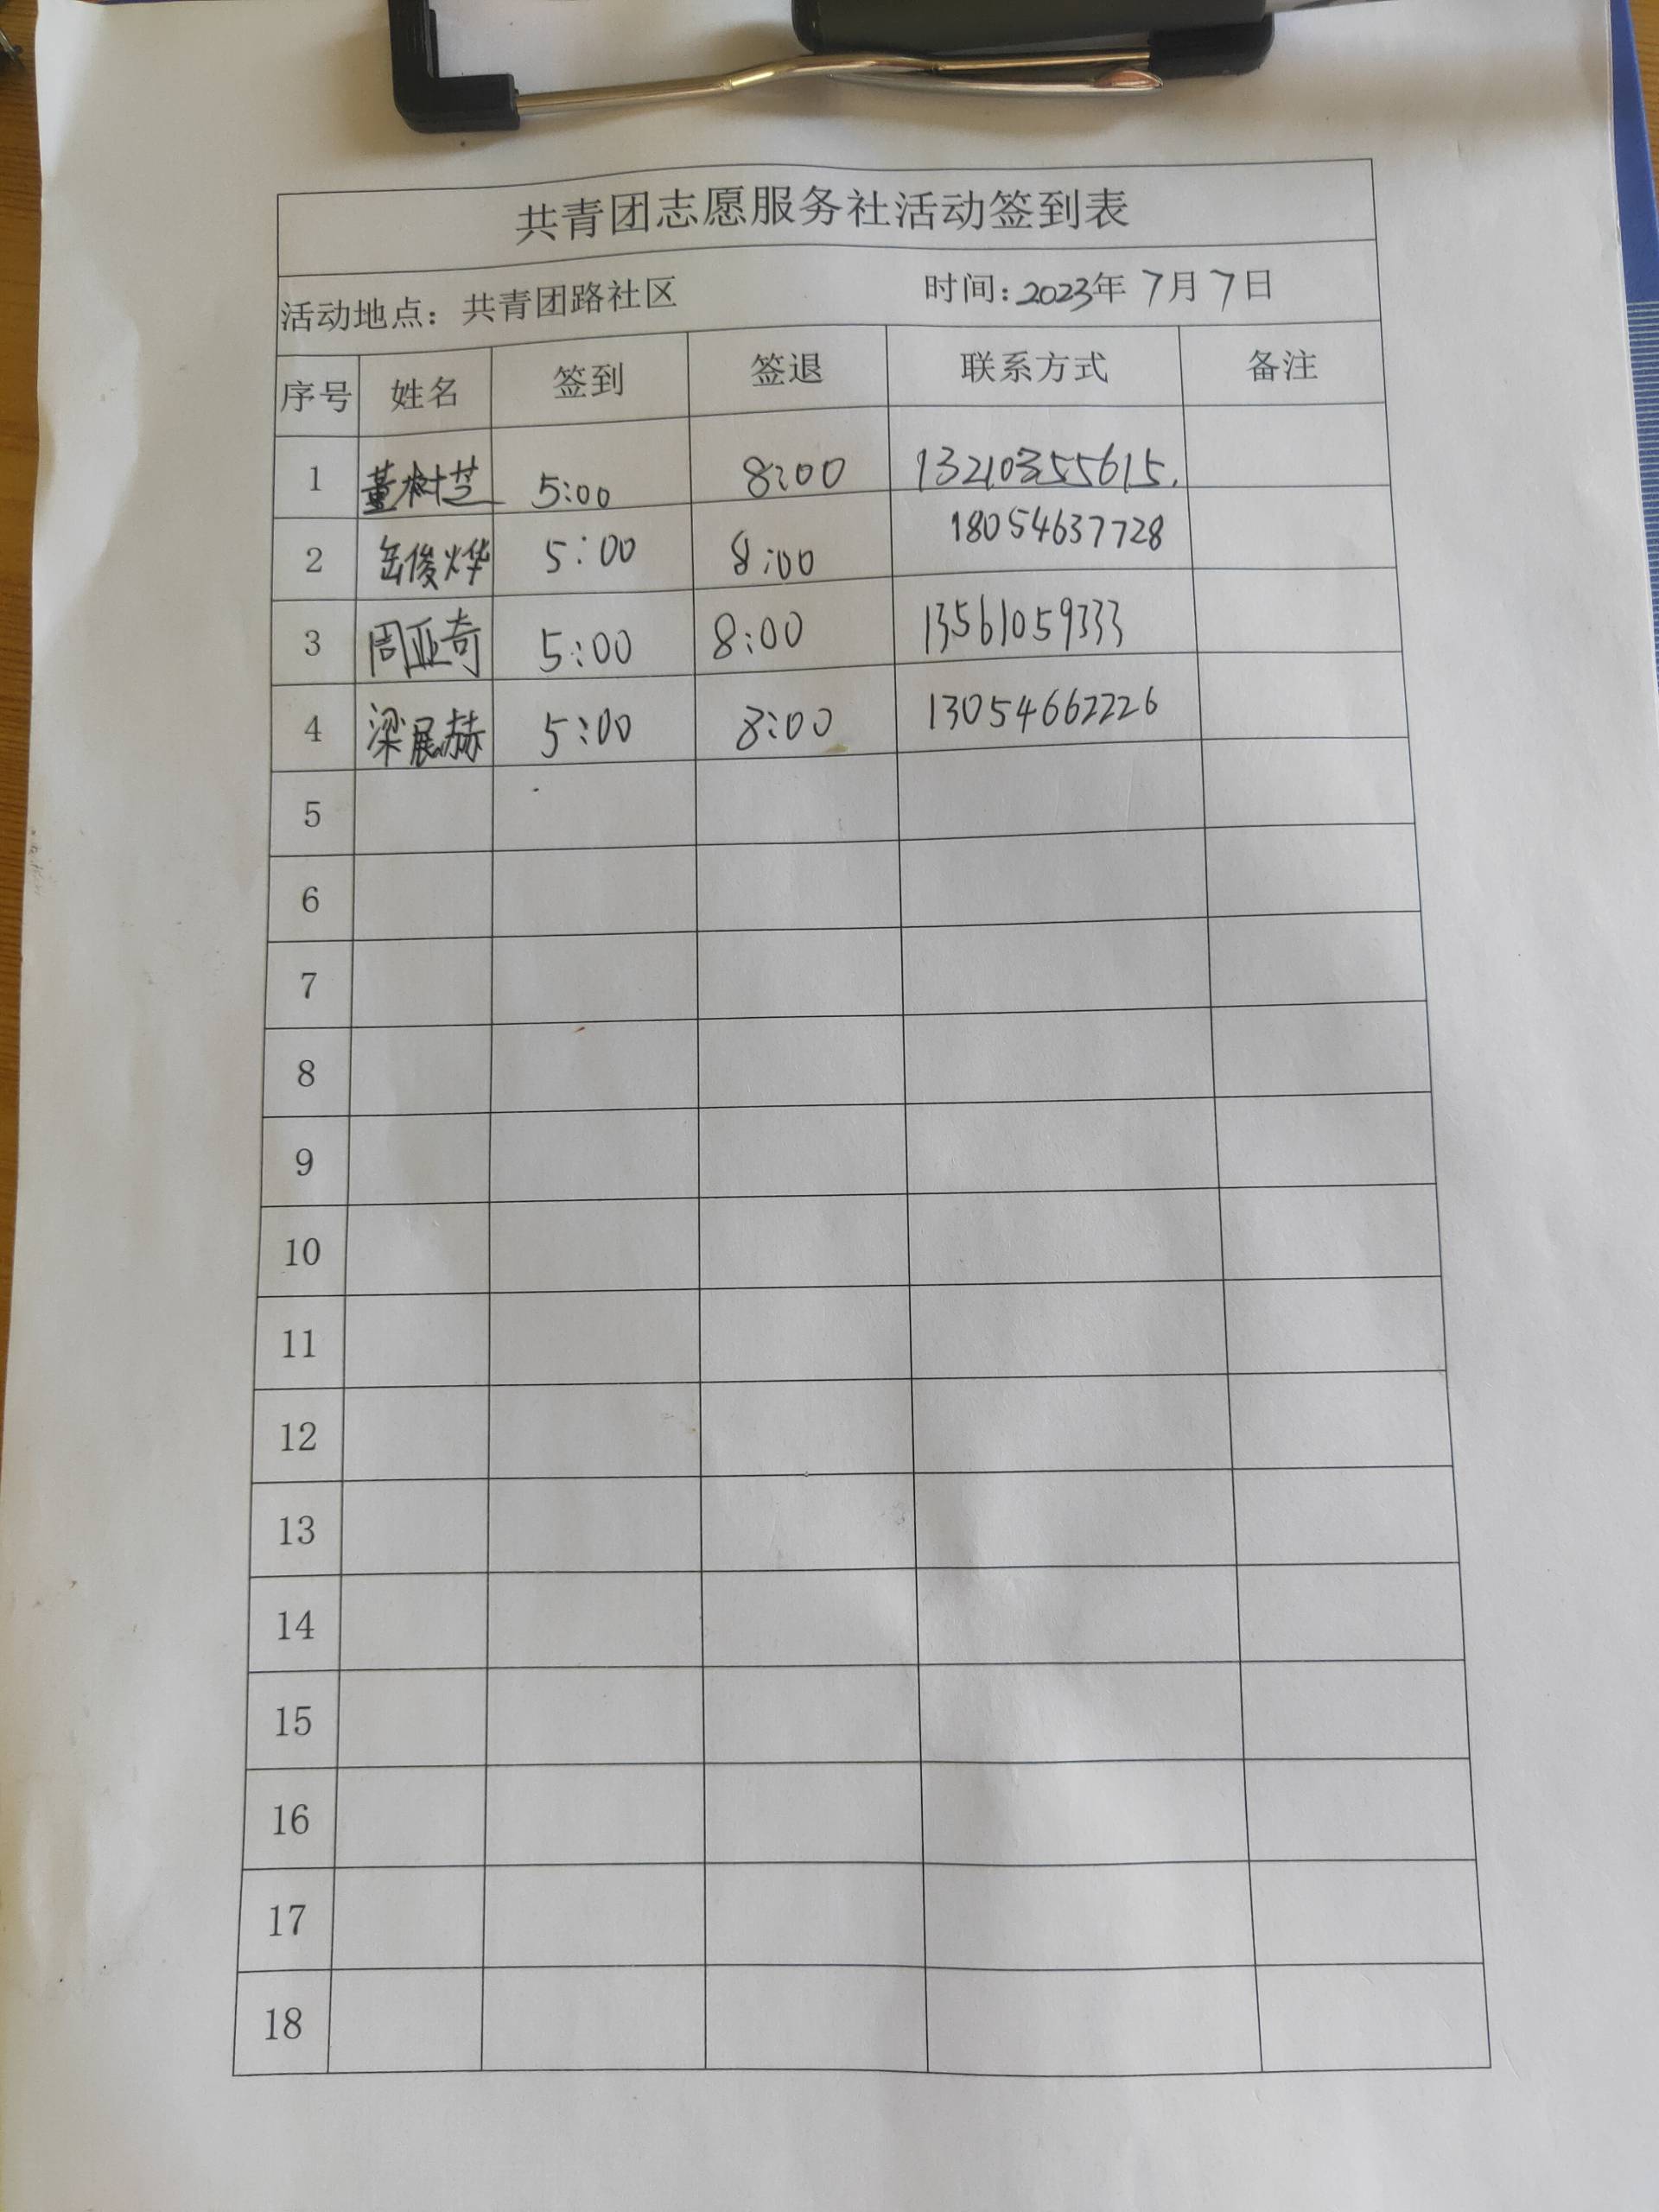 共青团志愿服务社活动签到表
活动地点：共青团路社区 时间：2023年 7月 7日
序号 姓名 签到 签退 联系方式 备注
1 董树芝 5:00 8:00 13210355615.
2 岳俊烨 5:00 8:00 18054637728
3 周亚奇 5:00 8:00 13561059333
4 梁展赫 5:00 8:00 13054662226
5
6
7
8
9
10
11
12
13
14
15
16
17
18